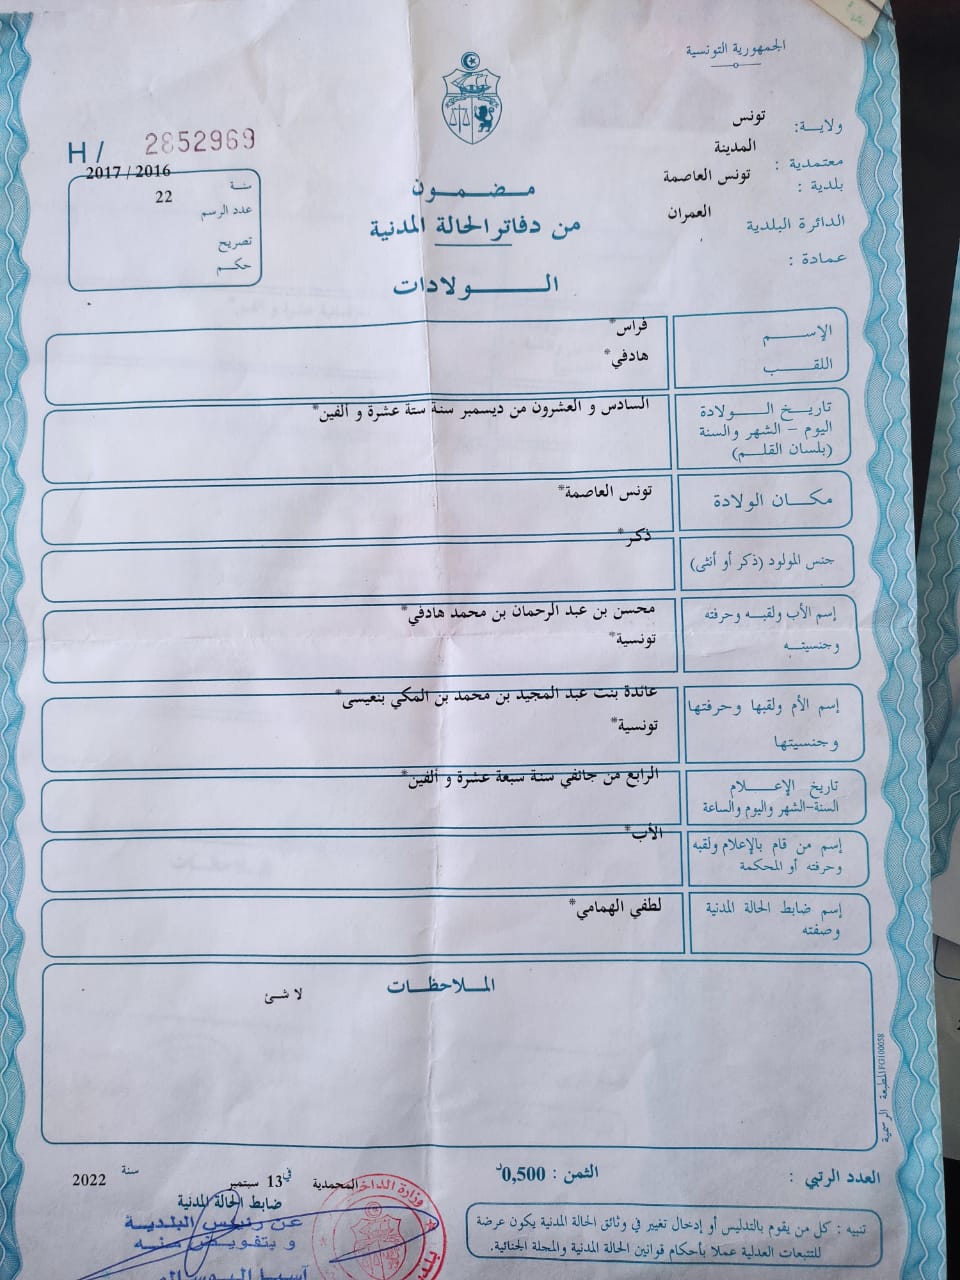 الجمهورية التونسية
ولايـة: تونس
معتمدية : المدينة
بلدية : تونس العاصمة
الدائرة البلدية العمران
عمادة :
H / 2852969
سنة 2017 / 2016
عدد الرسم 22
تصريح
حكـم
مـضـمـون
من دفاتر الحالة المدنية
الـولادات
الإسـم فراس*
اللقـب هادفي*
تاريـخ الـولادة السادس و العشرون من ديسمبر سنة ستة عشرة و ألفين*
اليوم - الشهر والسنة
(بلسان القلـم)
مكـان الولادة تونس العاصمة*
جنس المولود (ذكر أو أنثى) ذكر*
إسم الأب ولقبـه وحرفته محسن بن عبد الرحمان بن محمد هادفي*
وجنسيتـه تونسية*
إسم الأم ولقبها وحرفتها عائدة بنت عبد المجيد بن محمد بن المكي بنعيسى*
وجنسيتها تونسية*
تاريخ الإعـلام الرابع من جانفي سنة سبعة عشرة و ألفين*
السنة-الشهر واليوم والساعة
إسم من قام بالإعلام ولقبه الأب*
وحرفته أو المحكمة
إسم ضابط الحالة المدنية لطفي الهمامي*
وصفته
الملاحظـات
لا شئ
المطبعة الرسمية FG100058
العدد الرتبي :
الثمن : 0,500د
المحمدية في 13 سبتمبر سنة 2022
ضابط الحالة المدنية
عن رئيس البلدية
و بتفويض منه
وزارة الداخ
تنبيه : كل من يقوم بالتدليس أو إدخال تغيير في وثائق الحالة المدنية يكون عرضة
للتتبعات العدلية عملا بأحكام قوانين الحالة المدنية والمجلة الجنائية.